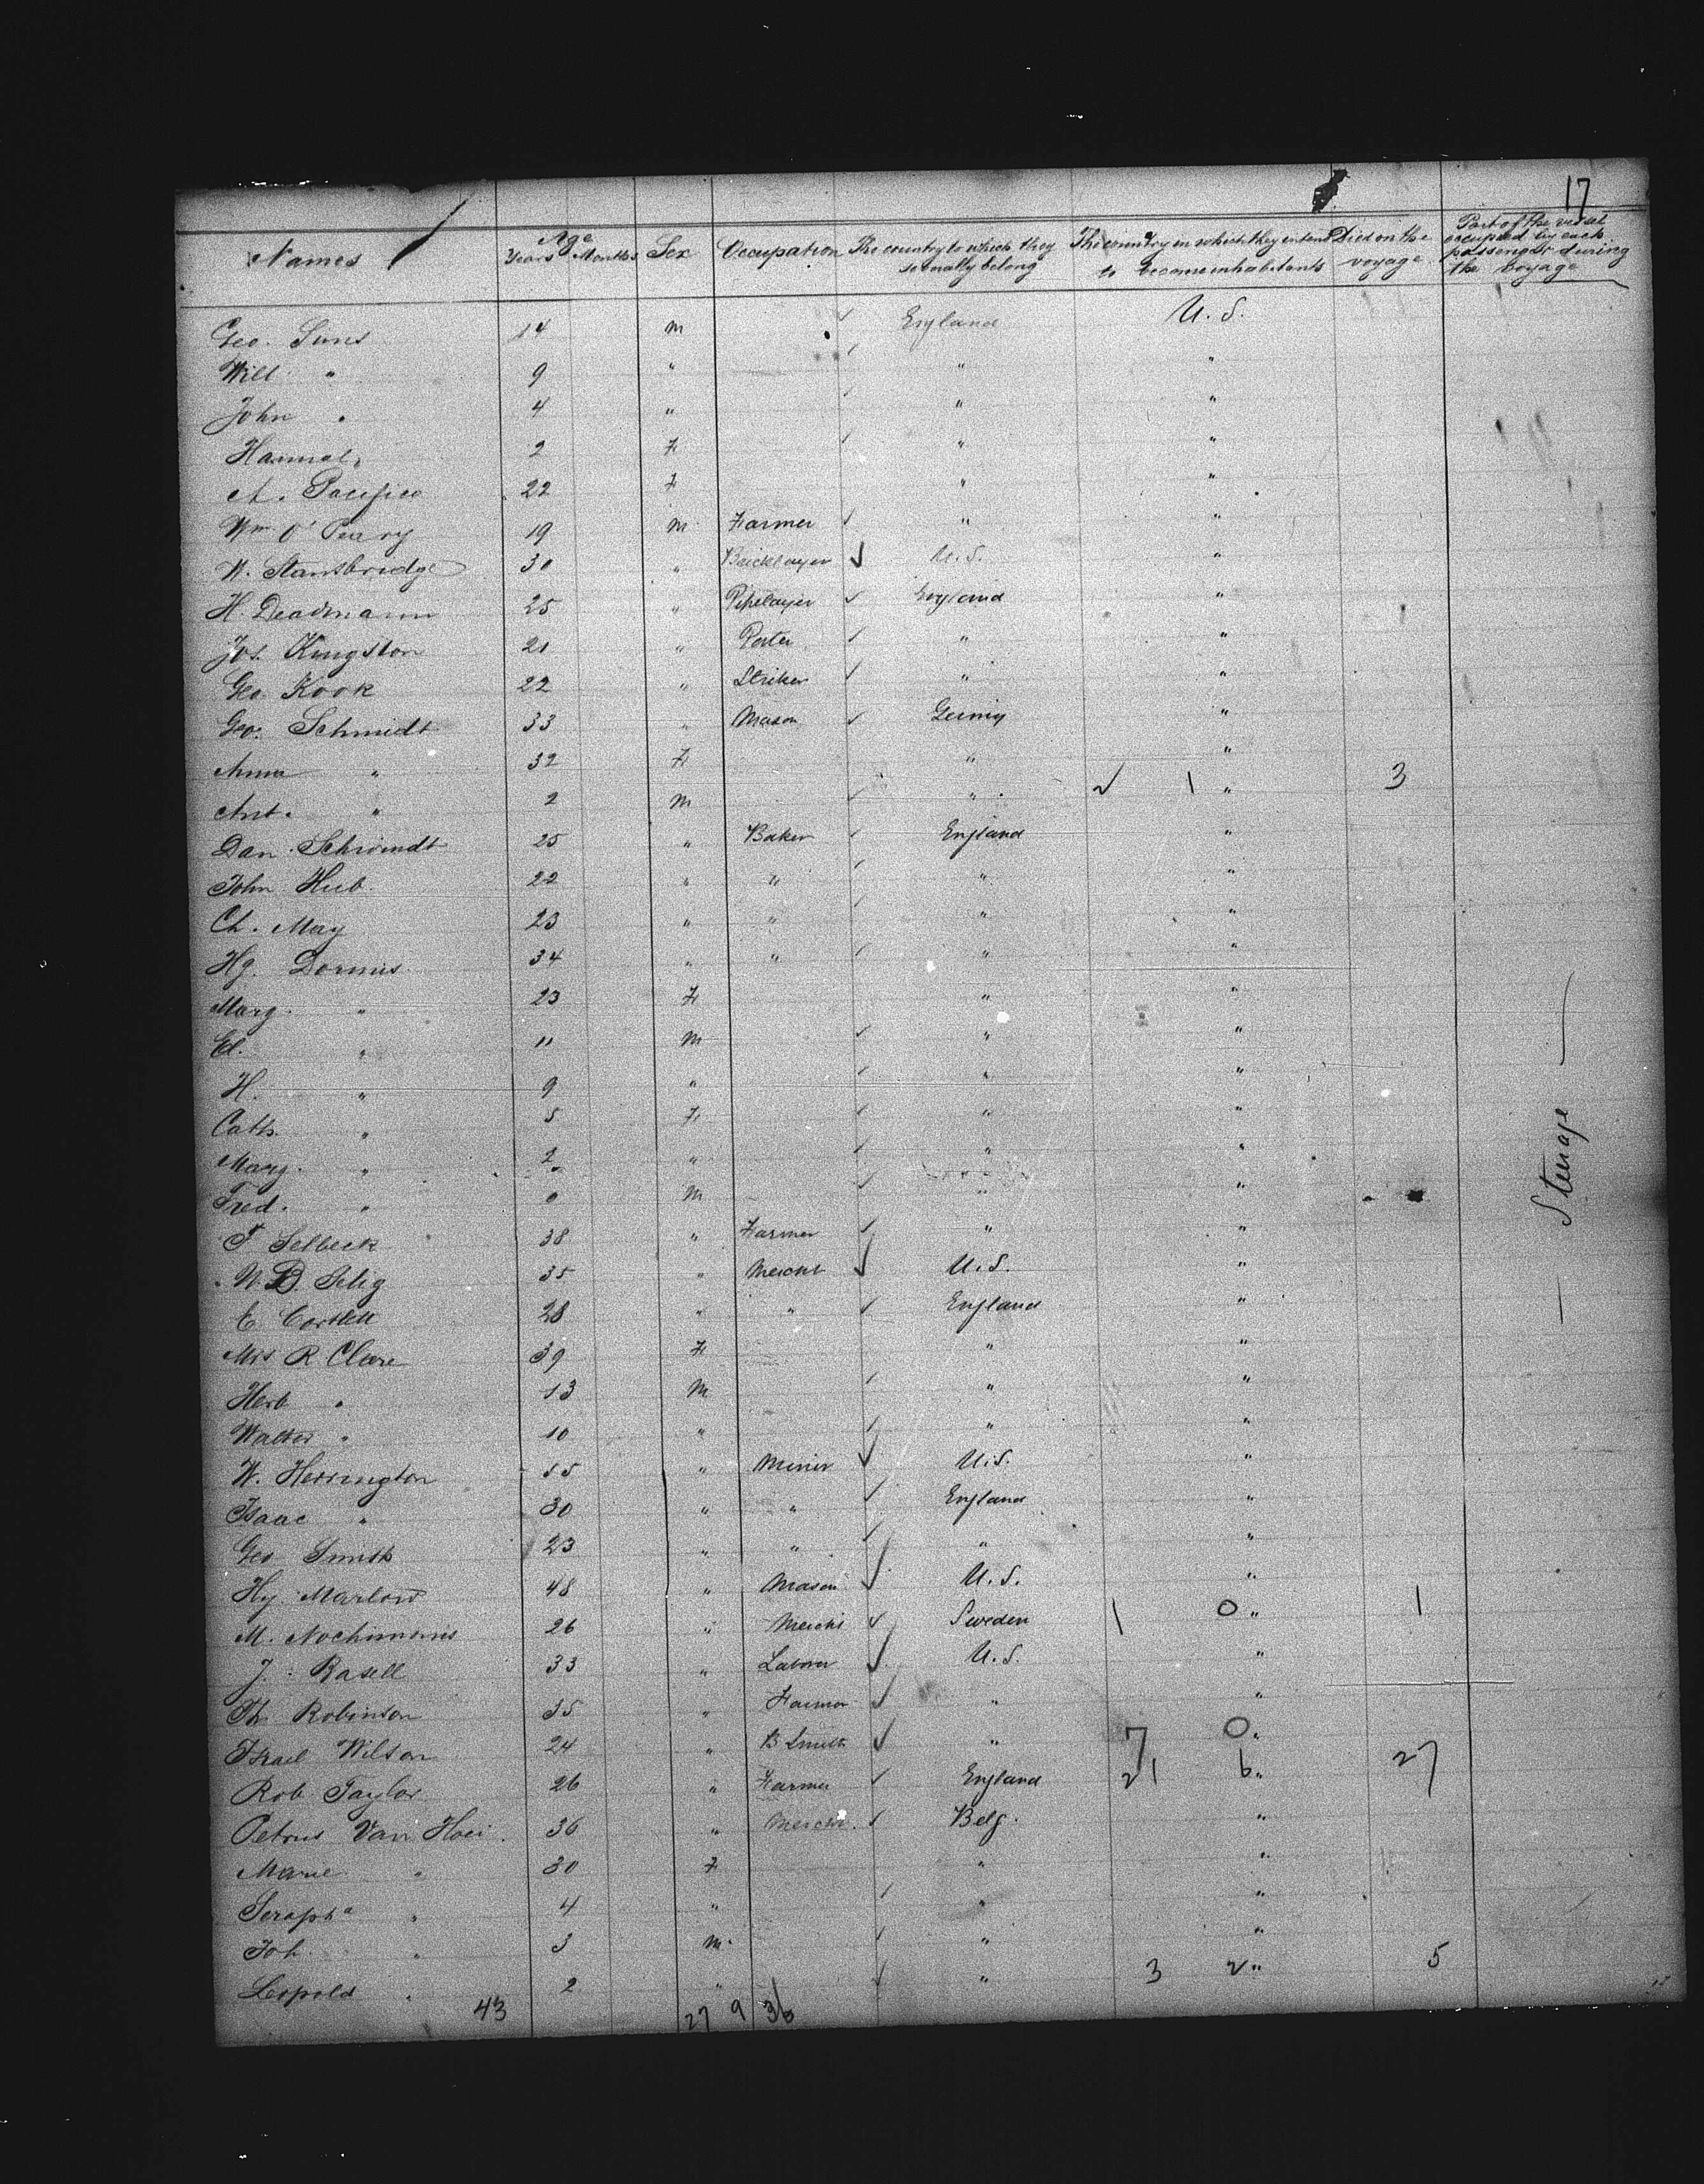 17
Names Age Years Months Sex Occupation The country to which they severally belong The country in which they intend to become inhabitants Died on the voyage Part of the vessel occupied by each passenger during the voyage
Geo. Sims 14 m England U.S.
Will " 9 " " "
John " 4 " " "
Hannah 2 F " "
A. Pacifico 22 F " "
Wm O' Peary 19 m Farmer " "
W. Stansbridge 30 " Bricklayer U.S. "
H. Deadmann 25 " Pipelayer England "
Jos. Kingston 21 " Porter " "
Geo. Kook 22 " Striker " "
Geo. Schmidt 33 " Mason Germy "
Anna " 32 F " "
Ant. " 2 m " 1 " 3
Dan Schwindt 25 " Baker England "
John Hub. 22 " " " "
Ch. May 23 " " " "
Hy. Dormis 34 " " " "
Marg. " 23 F " "
Ed. " 11 m " "
H. " 9 " " "
Cath. " 5 F " "
Marg. " 2 " " "
Fred. " 0 m " "
F Selbeck 38 " Farmer " "
W. D. Selig 35 " Mercht U.S. "
E Cortlett 28 " " England "
Mrs R. Clare 39 F " "
Herb " 13 m " "
Walter " 10 " " "
W. Herrington 55 " Miner U.S. "
Isaac " 30 " " England "
Geo Smith 23 " " " "
Hy. Marlow 48 " Mason U.S. "
M. 26 " Mercht Sweden 1 0 " 1
J. Rasell 33 " Laborer U.S. "
Th. Robinson 35 " Farmer " "
Israel Wilson 24 " B Smith " 7 0 "
Rob. Taylor 26 " Farmer England 21 6 " 27
Petrus Van Hoei 36 " Mercht. Belg. "
Marie " 30 F " "
Serapha " 4 " " "
Joh. " 3 m. " "
Leopold " 2 " " 3 2 " 5
43 27 9 36
— Steerage —